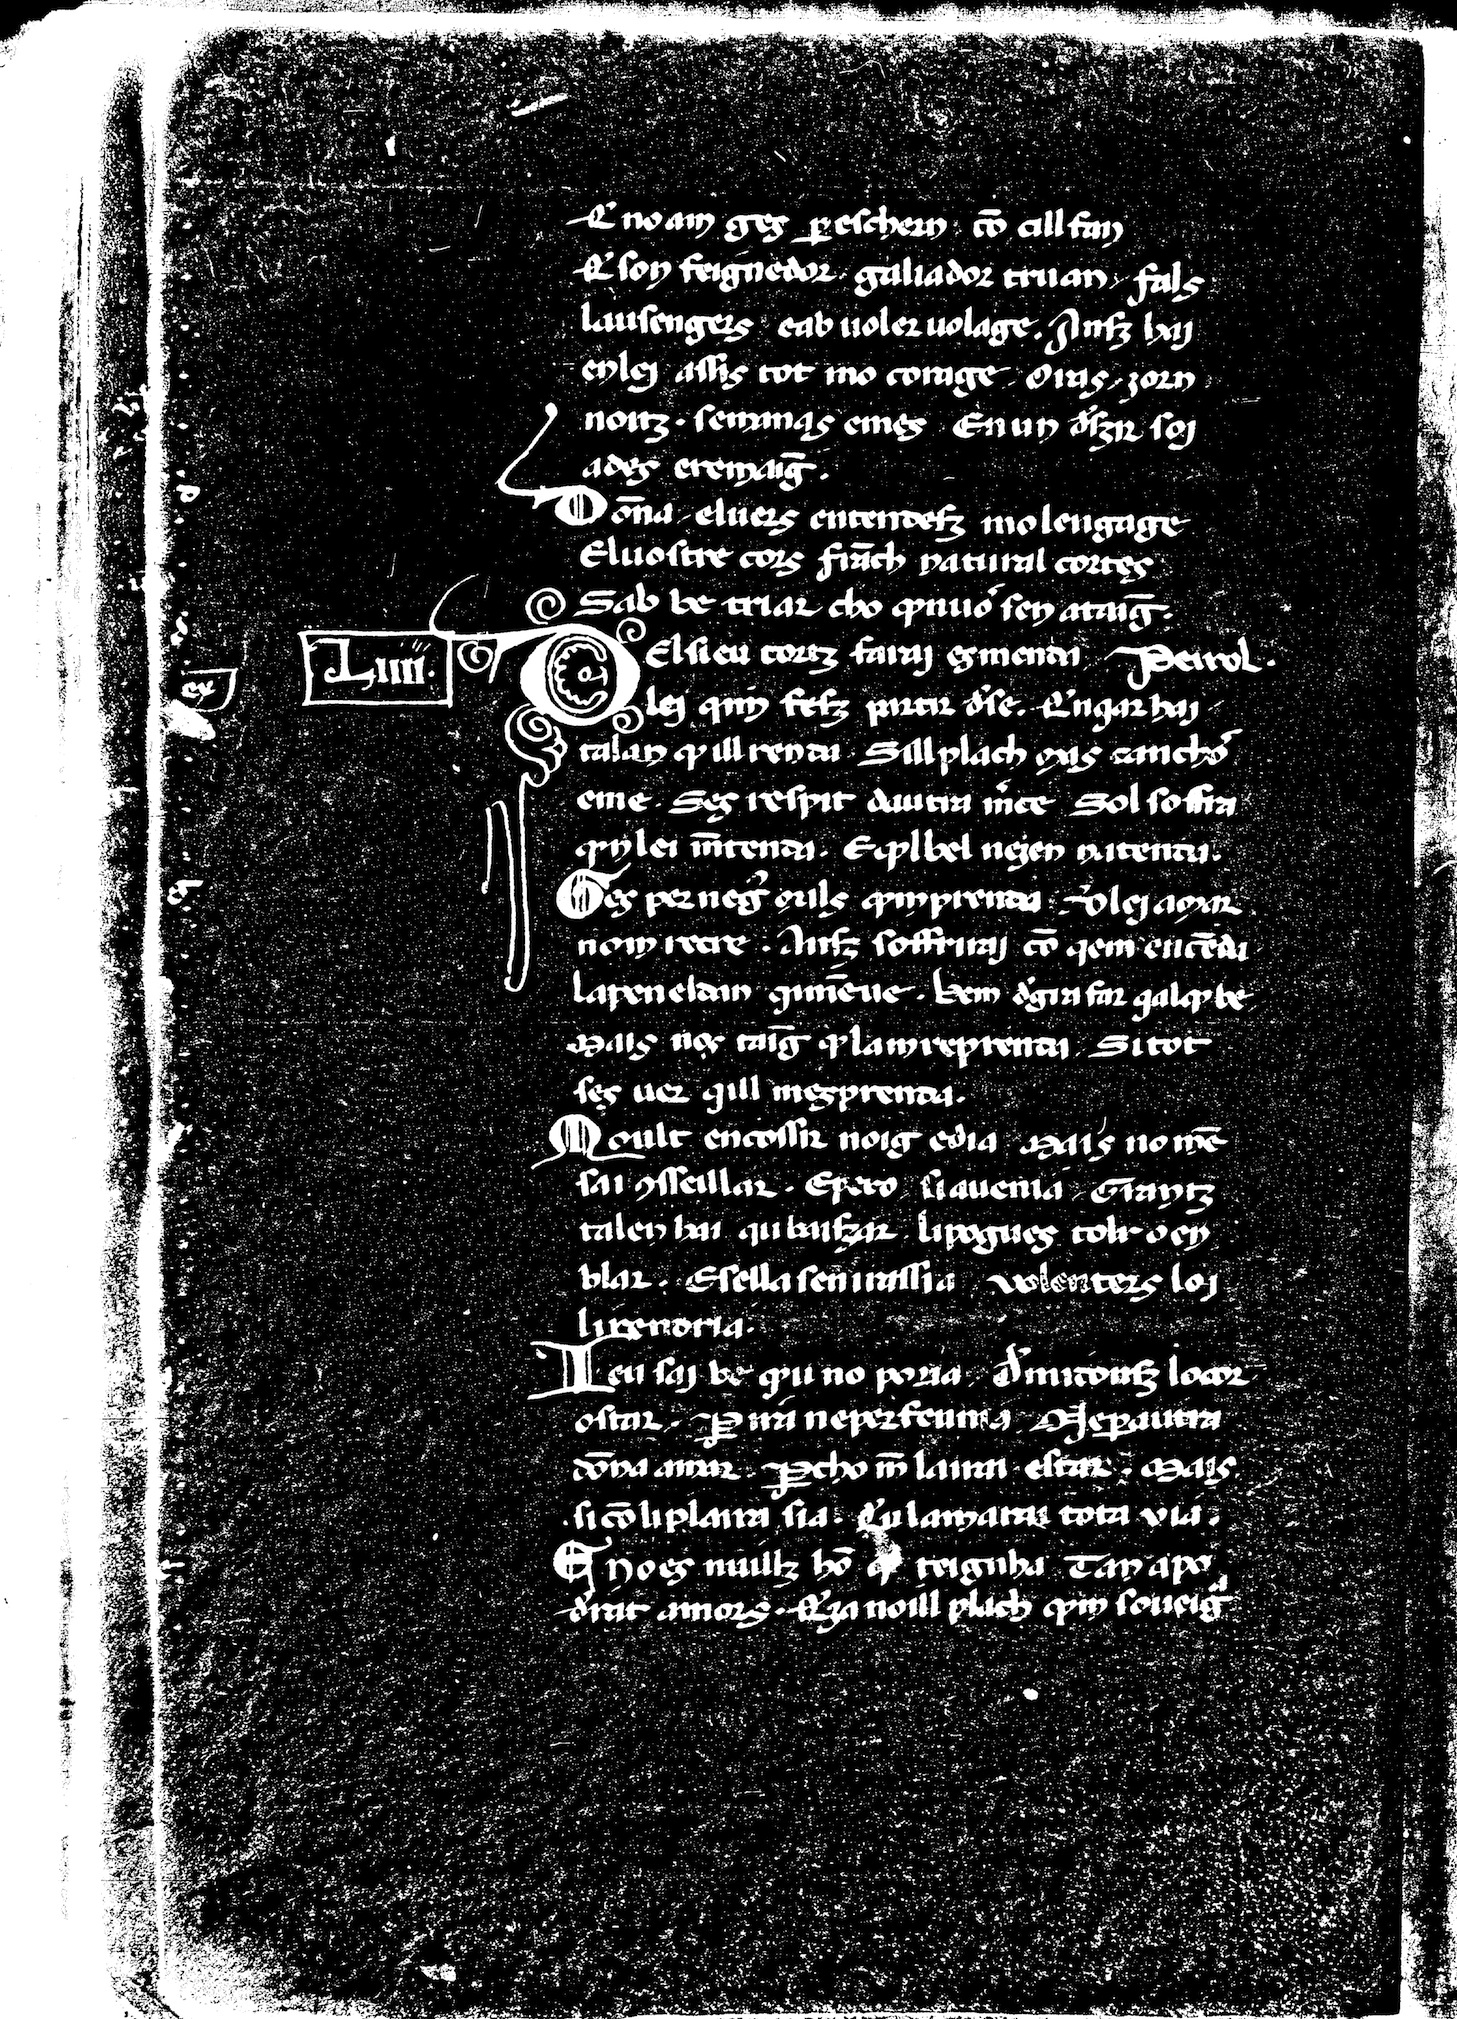 E no am ges ꝑ eschern · cō cill fan
E son feignedor · galiador truan · fals
lausengers · e ab uoler uolage . Ansz hai
en lei assis tot mo corage · Oras · zorn
noitz · semmas e mes En un dˀszir soi
ades e remaiḡ .
Dōna · el uers entendesz mo lengage
El uostre cors frāch natural cortes
Sab be triar cho qͥnuoˀ sen ataiḡ .
Lıııı .
Del sieu tortz farai esmenda Peirol .
lei qim fesz partir dˀse . Engar hai
talan qͥ ill renda · Sill plach mas canchoˀ
e me · Ses respit dautra mˀce Sol soffra
qͥn lei m̄tenda . E qͥl bel nejen natenda .
Ges per negˀ mals qͥm prenda · Do lei amar
nom recre . Ansz soffrirai cō qem encēda
la pen el dan qimēue . Bem dˀgra far qalqͥ be
Mais nos taiḡ qͥ lam reprenda Si tot
ses uer qill mesprenda .
Moult encossir noig e dia Mais no mē
sai ꝯseillar . Epero si auenia Grantz
talen hai qu baiszar li pogues tolr o en
blar . E sella sen irassia volenters loi
li rendria .
Ieu sai be qͥu no poria · dˀmi tonsz locor
ostar . Ꝑ ira ne per feunia Ne ꝑ autra
dōna amar . Ꝑ cho m̄ laira estar . Mais
si cō li plaira sia · Qu lamarai tota via .
E no es nuillz hō qͥ teignha Tan a po
dˀrat amors . Eia noill plach qͥm soueigᵃ